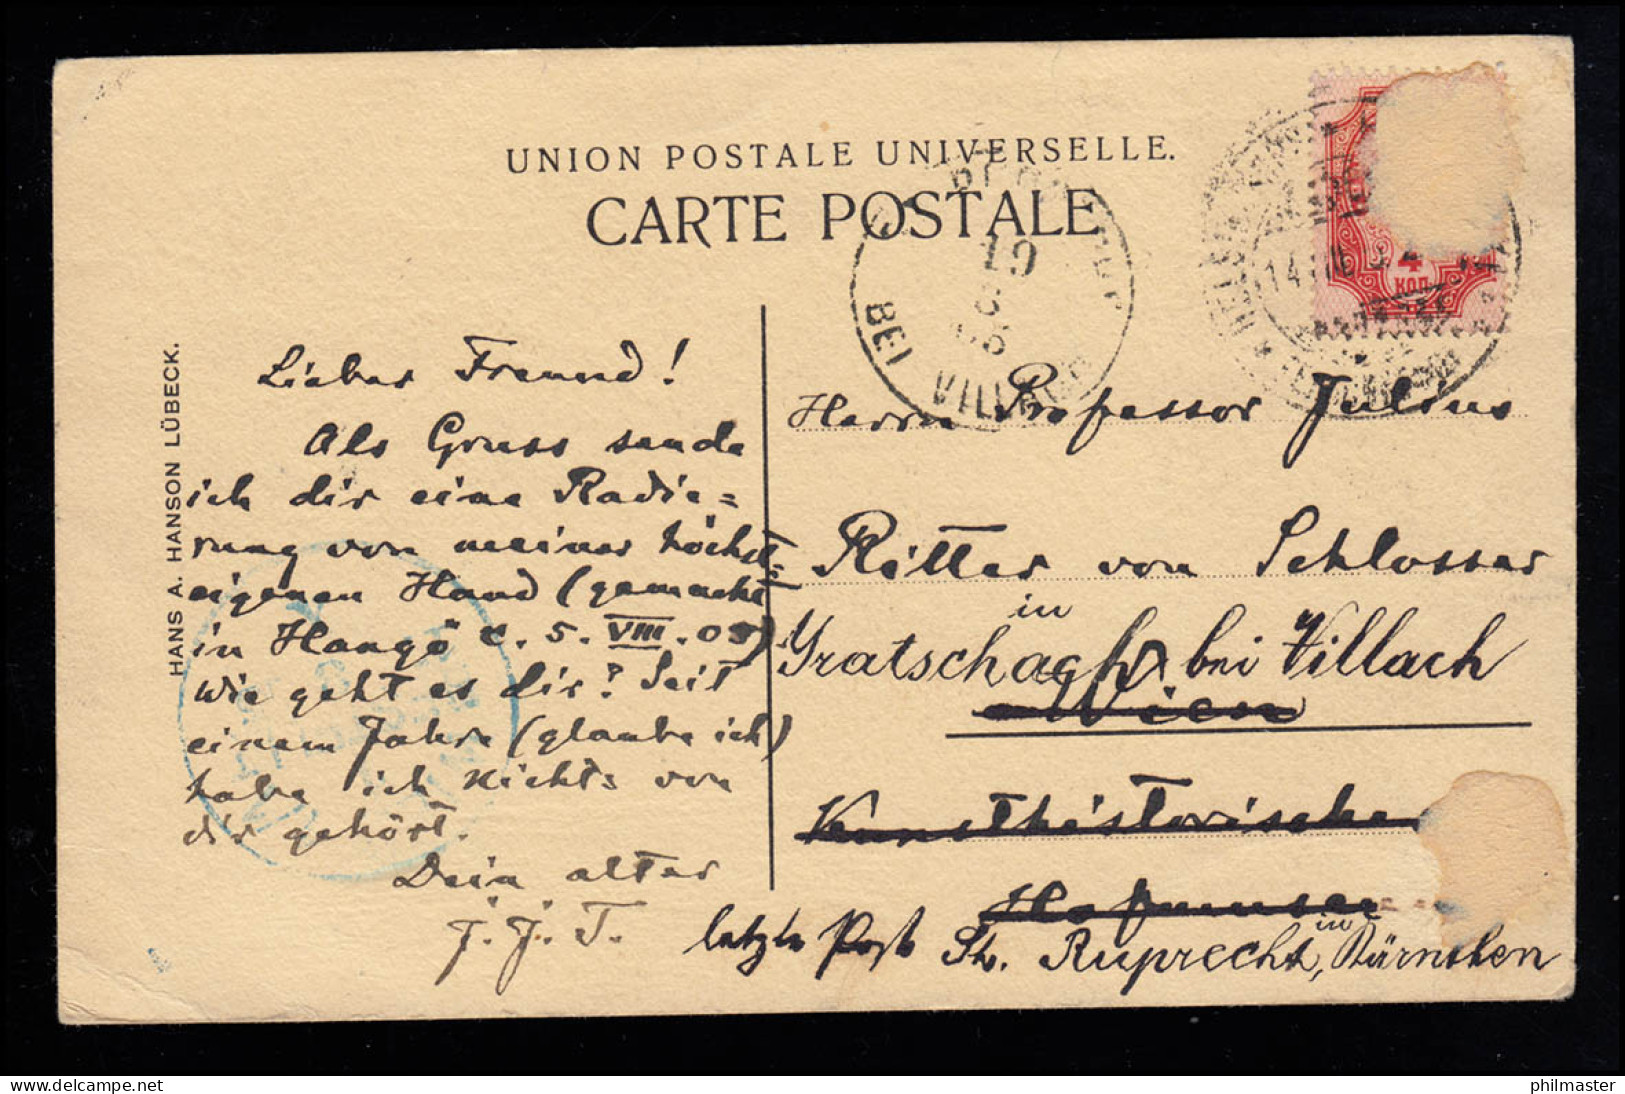 UNION POSTALE UNIVERSELLE.
CARTE POSTALE
BEI
VILLACH
19
4
КОП
14
HANS A. HANSON LÜBECK.
Lieber Freund!
Als Gruss sende
ich dir eine Radie=
rung von meiner höchst=
eigenen Hand (gemacht
in Hangö d. 5. VIII. 05)
wie geht es dir? Seit
einem Jahre (glaube ich)
habe ich nichts von
dir gehört.
Dein alter
J. J. T.
Herrn Professor Julius
Ritter von Schlosser
in
Gratschach bei Villach
Wien
Kunsthistorische
Hofmuseen
letzte Post St. Ruprecht, in Dürnstein
delcampe.net
philmaster